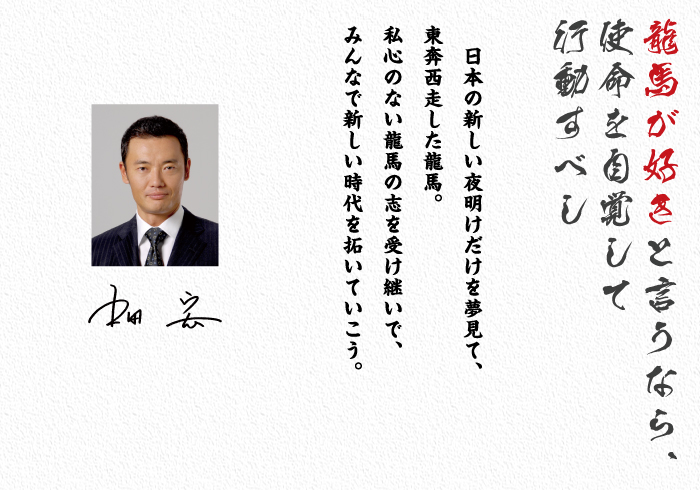 龍馬が好きと言うなら、
使命を自覚して
行動すべし
日本の新しい夜明けだけを夢見て、
東奔西走した龍馬。
私心のない龍馬の志を受け継いで、
みんなで新しい時代を拓いていこう。